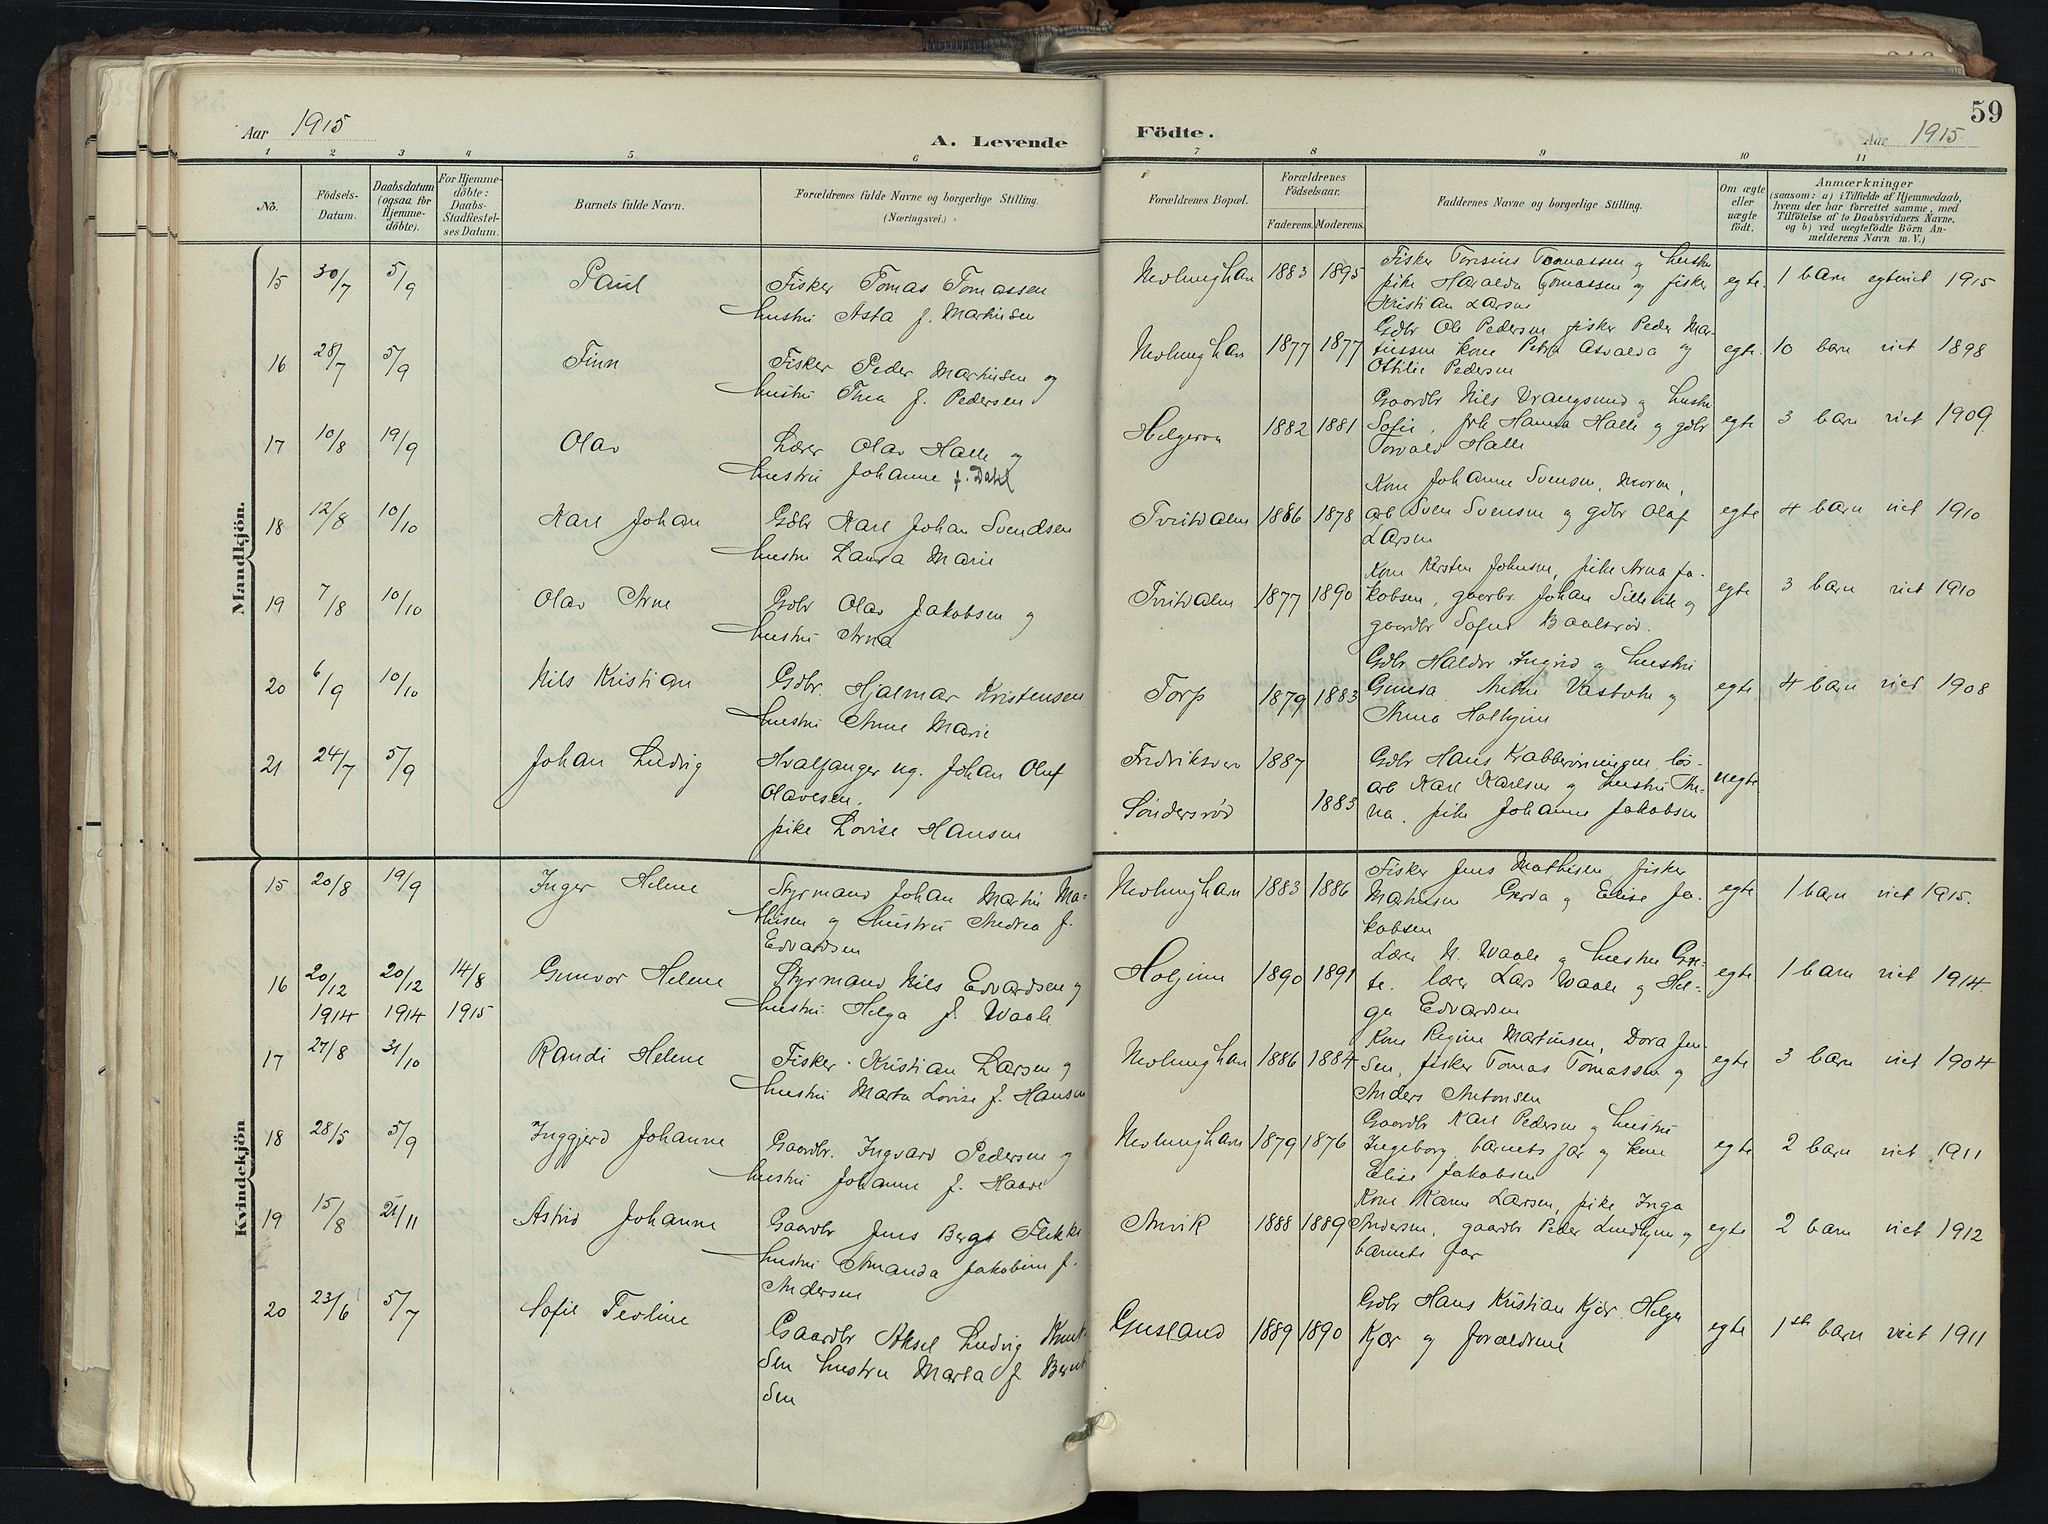 59
Aar 1915
A. Levende
Födte.
Aar 1915
1 2 3 4 5 6 7 8 9 10 11
No.
Födsels-Datum.
Daabsdatum (ogsaa for Hjemmedöbte).
For Hjemmedöbte: Daabs-Stadfestelses Datum.
Barnets fulde Navn.
Forældrenes fulde Navne og borgerlige Stilling. (Næringsvei.)
Forældrenes Bopæl.
Forældrenes Födselsaar.
Faderens. Moderens.
Faddernes Navne og borgerlige Stilling.
Om ægte eller uægte födt.
Anmærkninger
(saasom: a) i Tilfælde af Hjemmedaab,
hvem der har forrettet samme, med
Tilföielse af to Daabsvidners Navne,
og b) ved uægtefödte Börn An-
melderens Navn m. V.)
Mandkjön.
15 30/7 5/9 Paul
Fisker Tomas Tomassen
hustru Asta f. Martinsen
Nevlunghavn 1883 1895
Fisker Tomassen og hustru
pike Haralda Tomassen og fisker
Kristian Larsen
egte. 1 barn egteviet 1915
16 28/7 5/9 Finn
Fisker Peder Martinsen og
hustru Thea f. Pedersen
Nevlunghavn 1877 1877
Gdbr Ole Pedersen fisker Peder Mar-
tinssen kone Petra Asvalda og
Ottilie Pedersen
egte. 10 barn viet 1898
17 10/8 19/9 Olav
Lærer Olav Halle og
hustru Johanne f. Dahl
Helgeroa 1882 1881
Gaardbr Nils Vrangsund og hustru
Sofie, frk Hanna Halle og gdbr
Torvald Halle
egte 3 barn viet 1909
18 12/8 10/10 Karl Johan
Gdbr Karl Johan Svendsen
hustru Laura Marie
Tvitdalm 1886 1878
Kone Johanne Svensen,
arb Sven Svensen og gdbr Olaf
Larsen
egte 4 barn viet 1910
19 7/8 10/10 Olav Arne
Gdbr Olav Jakobsen og
hustru Arna
Tvitdalm 1877 1890
Kone Kirsten Johnsen, pike Arna Ja-
kobsen, gaardbr. Johan og
gaardbr Sofus
egte 3 barn viet 1910
20 6/9 10/10 Nils Kristian
Gdbr. Hjalmar Kristensen
hustru Anne Marie
Torp 1879 1883
Gdbr Haldor og hustru
Gunda og
Anna Holhjem
egte 4 barn viet 1908
21 24/7 5/9 Johan Ludvig
Hvalfanger ug. Johan Oluf
Olavesen.
pike Lovise Hansen
Fredriksvern 1887
Søndersrød 1883
Gdbr Hans Krabberønningen, løs-
arb Karl Karlsen og hustru An-
na. pike Johanne Jakobsen
uegte
Kvindekjön
15 20/8 19/9 Inger Helene
Styrmand Johan Martin Ma-
thisen og hustru Andrea f.
Edvardsen
Nevlunghavn 1883 1886
Fisker Jens Mathisen, fisker
Mathisen Gerda og Elise Ja-
kobsen
egte 1 barn viet 1915.
16 20/12 1914 20/12 1914 14/8 1915 Gunvor Helene
Styrmand Nils Edvardsen og
hustru Helga f. Waale
Holjinn 1890 1891
Lærer N. Waale og hustru Gre-
te. lærer Lars Waale og Hel-
ga Edvardsen
egte. 1 barn viet 1914.
17 27/8 31/10 Randi Helene
Fisker Kristian Larsen og
hustru Marta Lovise f. Hansen
Nevlunghavn 1886 1884
Kone Regine Martinsen, Dora Jen-
sen, fisker Tomas Tomassen og
Anders Antonsen
egte 3 barn viet 1904
18 28/5 5/9 Inggjerd Johanne
Gaardbr. Ingvard Pedersen og
hustru Johanne f. Haave
Nevlunghavn 1879 1876
Gaardbr Karl Pedersen og hustru
Ingeborg, barnets far og kone
Elise Jakobsen
egte 2 barn viet 1911
19 15/8 21/11 Astrid Johanne
Gaardbr Jens Berge
hustru Amanda Jakobine f.
Andersen
Anvik 1888 1889
Kone Karen Larsen, pike Inga
Andersen, gaardbr Peder Lindhjem og
barnets far
egte 2 barn viet 1912
20 23/6 5/7 Sofie Teoline
Gaardbr Aksel Ludvig Knut-
sen hustru Marta f. Bernt
sen
Gusland 1889 1890
Gdbr Hans Kristian Kjær. Helga
Kjær og forældrene
egte 1st barn viet 1911